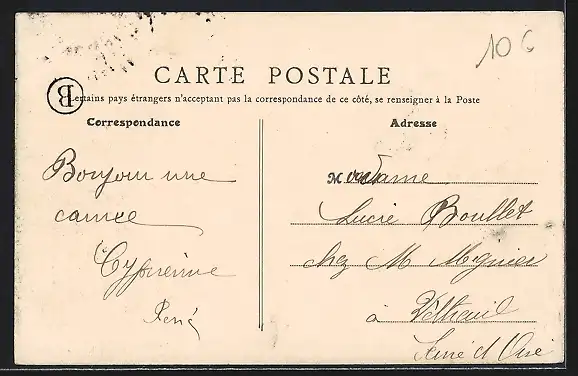 10 €
CARTE POSTALE
B
Certains pays étrangers n'acceptant pas la correspondance de ce côté, se renseigner à la Poste
Correspondance
Adresse
Bonjour une
camee
Cyprienne
René
Madame
Lucie Boullet
chez M Mignier
à Vétheuil
Seine et Oise